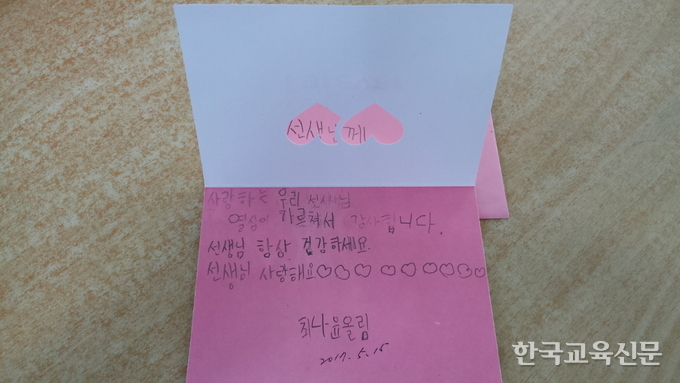 선생님께
사랑하는 우리 선생님
열심히 가르쳐서 감사합니다.
선생님 항상 건강하세요.
선생님 사랑해요♡♡♡ ♡♡♡♡♡♡
최나윤올림
2017. 5. 15
한국교육신문